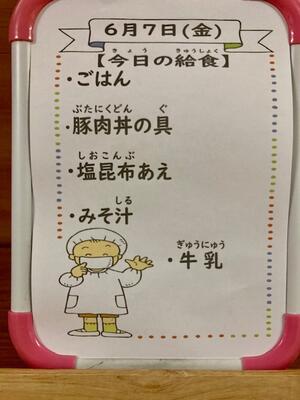 6月7日(金)
きょう きゅうしょく
【今日の給食】
・ごはん
ぶたにくどん ぐ
・豚肉丼の具
しおこんぶ
・塩昆布あえ
しる
・みそ汁
ぎゅうにゅう
・牛乳